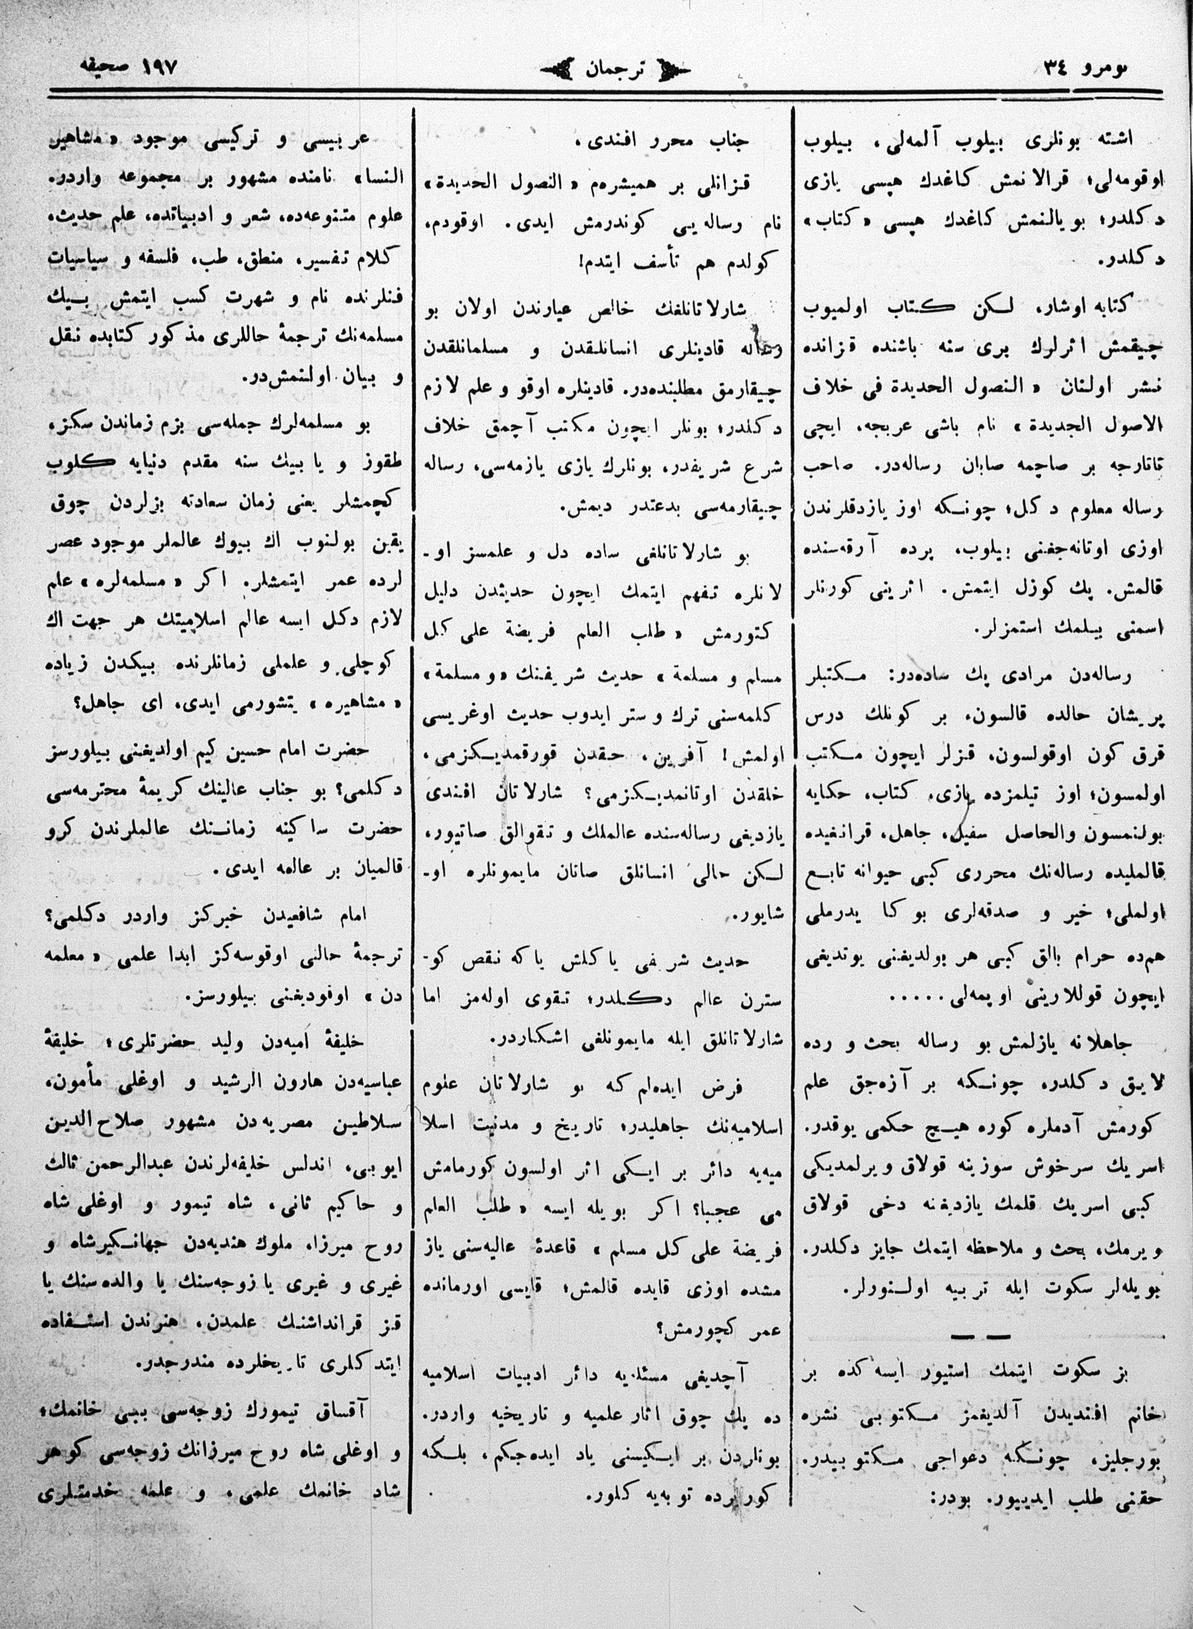 نومرو ٣٤
ترجمان
١٩٧ صحيفه
اشته بونلرى بيلوب آلمه‌لى، بيلوب
اوقومه‌لى؛ قرالانمش كاغدك هپسى يازى
دكلدر؛ بويالنمش كاغدك هپسى «كتاب»
دكلدر.
كتابه اوشار، لكن كتاب اولميوب
چيقمش اثرلرك برى سنه باشنده قزانده
نشر اولنان «النصول الحديدة فى خلاف
الاصول الجديدة» نام باشى عربجه، ايچى
تاتارجه بر صاچمه صاپان رساله‌در. صاحب
رساله معلوم دكل؛ چونكه اوز يازدقلرندن
اوزى اوتانه‌جغنى بيلوب، پرده آرقه‌سنده
قالمش. پك كوزل ايتمش. اثرينى كورنلر
اسمنى بيلمك استمزلر.
رساله‌دن مرادى پك ساده‌در: مكتبلر
پريشان حالده قالسون، بر كونلك درس
قرق كون اوقولسون، قزلر ايچون مكتب
اولمسون؛ اوز تيلمزده يازى، كتاب، حكايه
بولنمسون والحاصل سفيل، جاهل، قرانغيده
قالمليده رساله‌نك محررى كبى حيوانه تابع
اولملى؛ خير و صدقه‌لرى بوكا يدرملى
هم‌ده حرام بالق كبى هر بولديغنى يوتديغى
ايچون قوللارينى اوپمه‌لى.....
جاهلانه يازلمش بو رساله بحث و رده
لايق دكلدر، چونكه بر آزه‌جق علم
كورمش آدملره كوره هيچ حكمى يوقدر.
اسريك سرخوش سوزينه قولاق ويرلمديكى
كبى اسريك قلمك يازديغنه دخى قولاق
ويرمك، بحث و ملاحظه ايتمك جايز دكلدر.
بويله‌لر سكوت ايله تربيه اولنورلر.
بز سكوت ايتمك استيور ايسه‌كده بر
خانم افنديدن آلديغمز مكتوبى نشره
بورجليز، چونكه دعواجى مكتوبيدر.
حقنى طلب ايدييور. بودر:
جناب محرر افندى،
قزانلى بر همشيره‌م «النصول الحديدة»
نام رساله‌يى كوندرمش ايدى. اوقودم،
كولدم هم تأسف ايتدم!
شارلاتانلغك خالص عيارندن اولان بو
رساله قادينلرى انسانلقدن و مسلمانلقدن
چيقارمق مطلبنده‌در. قادينلره اوقو و علم لازم
دكلدر؛ بونلر ايچون مكتب آچمق خلاف
شرع شريفدر، بونلرك يازى يازمه‌سى، رساله
چيقارمه‌سى بدعتدر ديمش.
بو شارلاتانلغى ساده دل و علمسز او-
لانلره تفهم ايتمك ايچون حديثدن دليل
كتورمش «طلب العلم فريضة على كل
مسلم و مسلمة» حديث شريفنك «و مسلمة»
كلمه‌سنى ترك و ستر ايدوب حديث اوغريسى
اولمش! آفرين، حقدن قورقمديكزمى،
خلقدن اوتانمديكزمى؟ شارلاتان افندى
يازديغى رساله‌سنده عالملك و تقوالق صاتيور،
لكن حالى انسانلق صانان مايمونلره او-
شايور.
حديث شريفى ياكلش ياكه نقص كو-
سترن عالم دكلدر؛ تقوى اوله‌مز اما
شارلاتانلق ايله مايمونلغى اشكاردر.
فرض ايده‌لم كه بو شارلاتان علوم
اسلاميه‌نك جاهليدر؛ تاريخ و مدنيت اسلا
ميه‌يه دائر بر ايكى اثر اولسون كورمامش
مى عجبا؟ اكر بويله ايسه «طلب العلم
فريضة على كل مسلم» قاعدهٔ عاليه‌سنى ياز
مشده اوزى قايده قالمش؛ قايسى اورمانده
عمر كچورمش؟
آچديغى مسئله‌يه دائر ادبيات اسلاميه
ده پك چوق اثار علميه و تاريخيه واردر.
بونلردن بر ايكيسنى ياد ايده‌جكم، بلكه
كوررده توبه‌يه كلور.
عربيسى و تركيسى موجود «مشاهير
النسا» نامنده مشهور بر مجموعه واردر.
علوم متنوعه‌ده، شعر و ادبياتده، علم حديث،
كلام تفسير، منطق، طب، فلسفه و سياسيات
فنلرنده نام و شهرت كسب ايتمش بيك
مسلمه‌نك ترجمهٔ حاللرى مذكور كتابده نقل
و بيان اولنمش‌در.
بو مسلمه‌لرك جمله‌سى بزم زماندن سكز،
طقوز و يا بيك سنه مقدم دنيايه كلوب
كچمشلر يعنى زمان سعادته بزلردن چوق
يقين بولنوب اك بيوك عالملر موجود عصر
لرده عمر ايتمشلر. اكر «مسلمه‌لره» علم
لازم دكل ايسه عالم اسلاميتك هر جهت اك
كوچلى و علملى زمانلرنده بيكدن زياده
«مشاهيره» يتشورمى ايدى، اى جاهل؟
حضرت امام حسين كيم اولديغنى بيلورسز
دكلمى؟ بو جناب عالينك كريمهٔ محترمه‌سى
حضرت ساكينه زماننك عالملرندن كرو
قالميان بر عالمه ايدى.
امام شافعيدن خبركز واردر دكلمى؟
ترجمهٔ حالنى اوقوسه‌كز ابدا علمى «معلمه
دن» اوقوديغنى بيلورسز.
خليفهٔ اميه‌دن وليد حضرتلرى؛ خليفهٔ
عباسيه‌دن هارون الرشيد و اوغلى مأمون،
سلاطين مصريه‌دن مشهور صلاح الدين
ايوبى، اندلس خليفه‌لرندن عبدالرحمن ثالث
و حاكيم ثانى، شاه تيمور و اوغلى شاه
روح ميرزا، ملوك هنديه‌دن جهانكيرشاه و
غيرى و غيرى يا زوجه‌سنك يا والده‌سنك يا
قز قرانداشنك علمدن، هنرندن استفاده
ايتدكلرى تاريخلرده مندرجدر.
آقساق تيمورك زوجه‌سى بيبى خانمك؛
و اوغلى شاه روح ميرزانك زوجه‌سى كوهر
شاد خانمك علمى، و علمه خدمتلرى